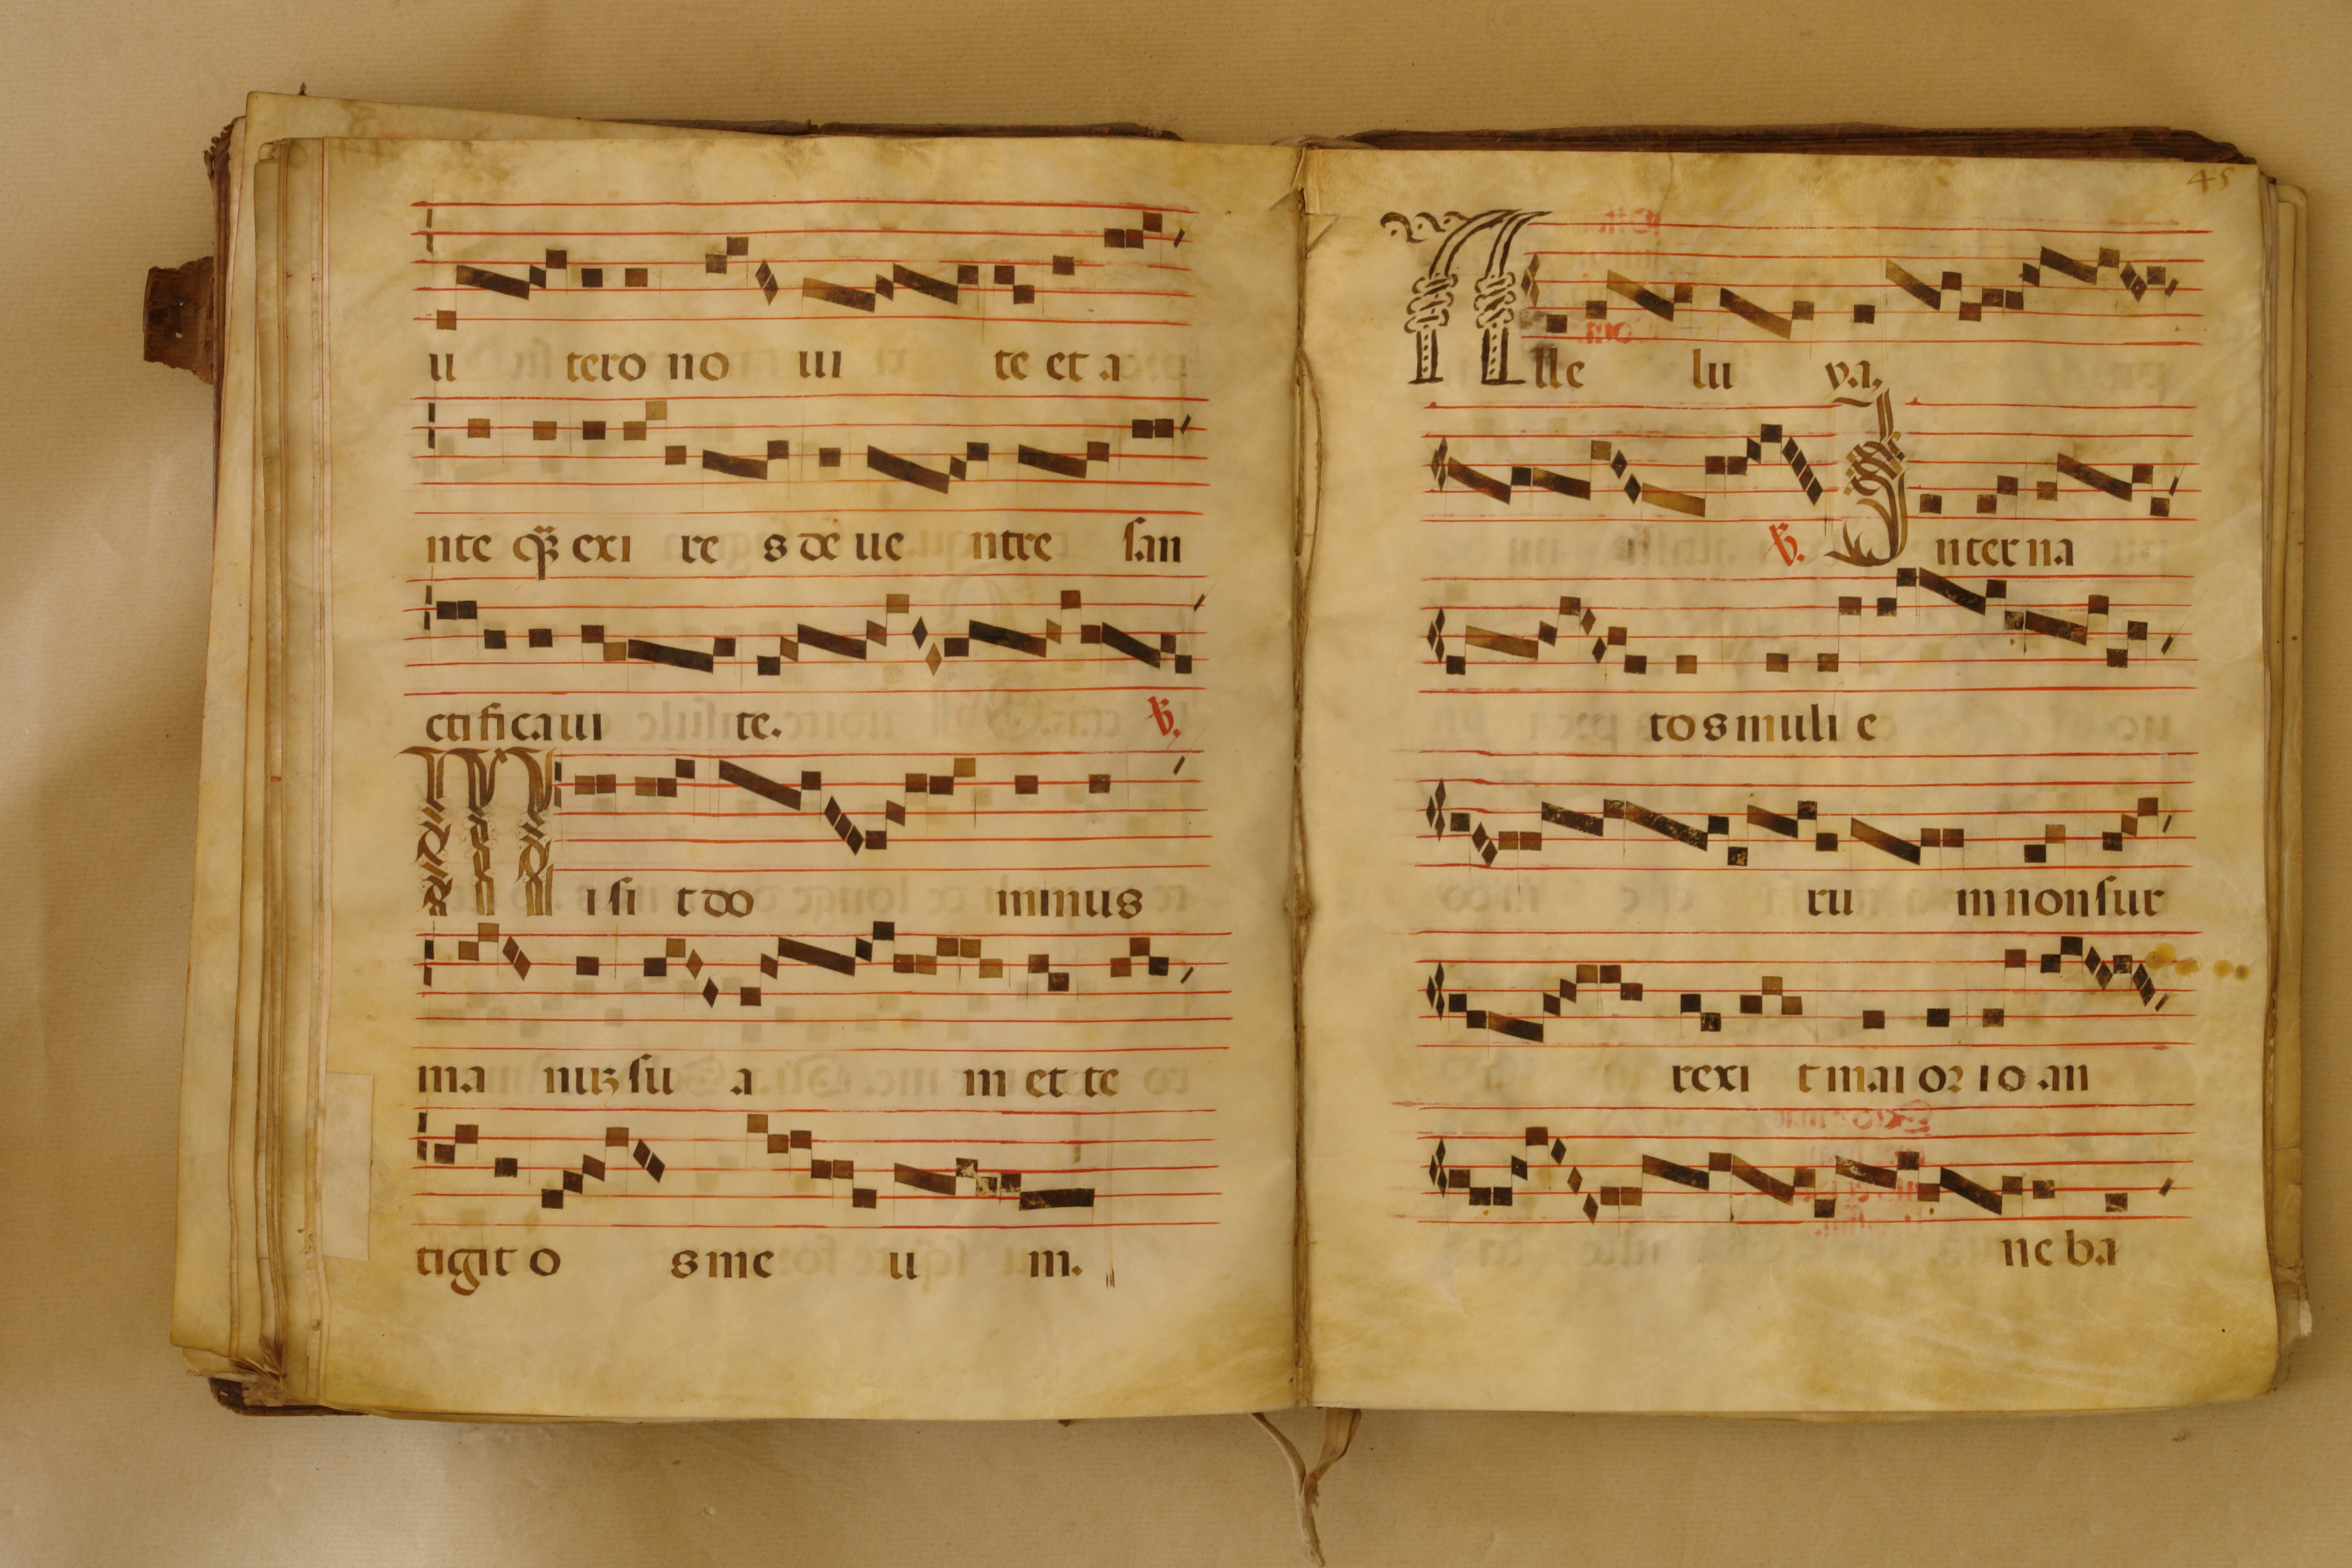 u tero no ui te et a
nte qꝫ exi re s de ue ntre san
ctificaui te. ℣.
Misi t do minus
ma nuꝫ su a m et te
tigit o s me u m.
45
Alle lu ya.
℣. Inter na
tos muli e
ru m non sur
rexi t maior io an
ne ba